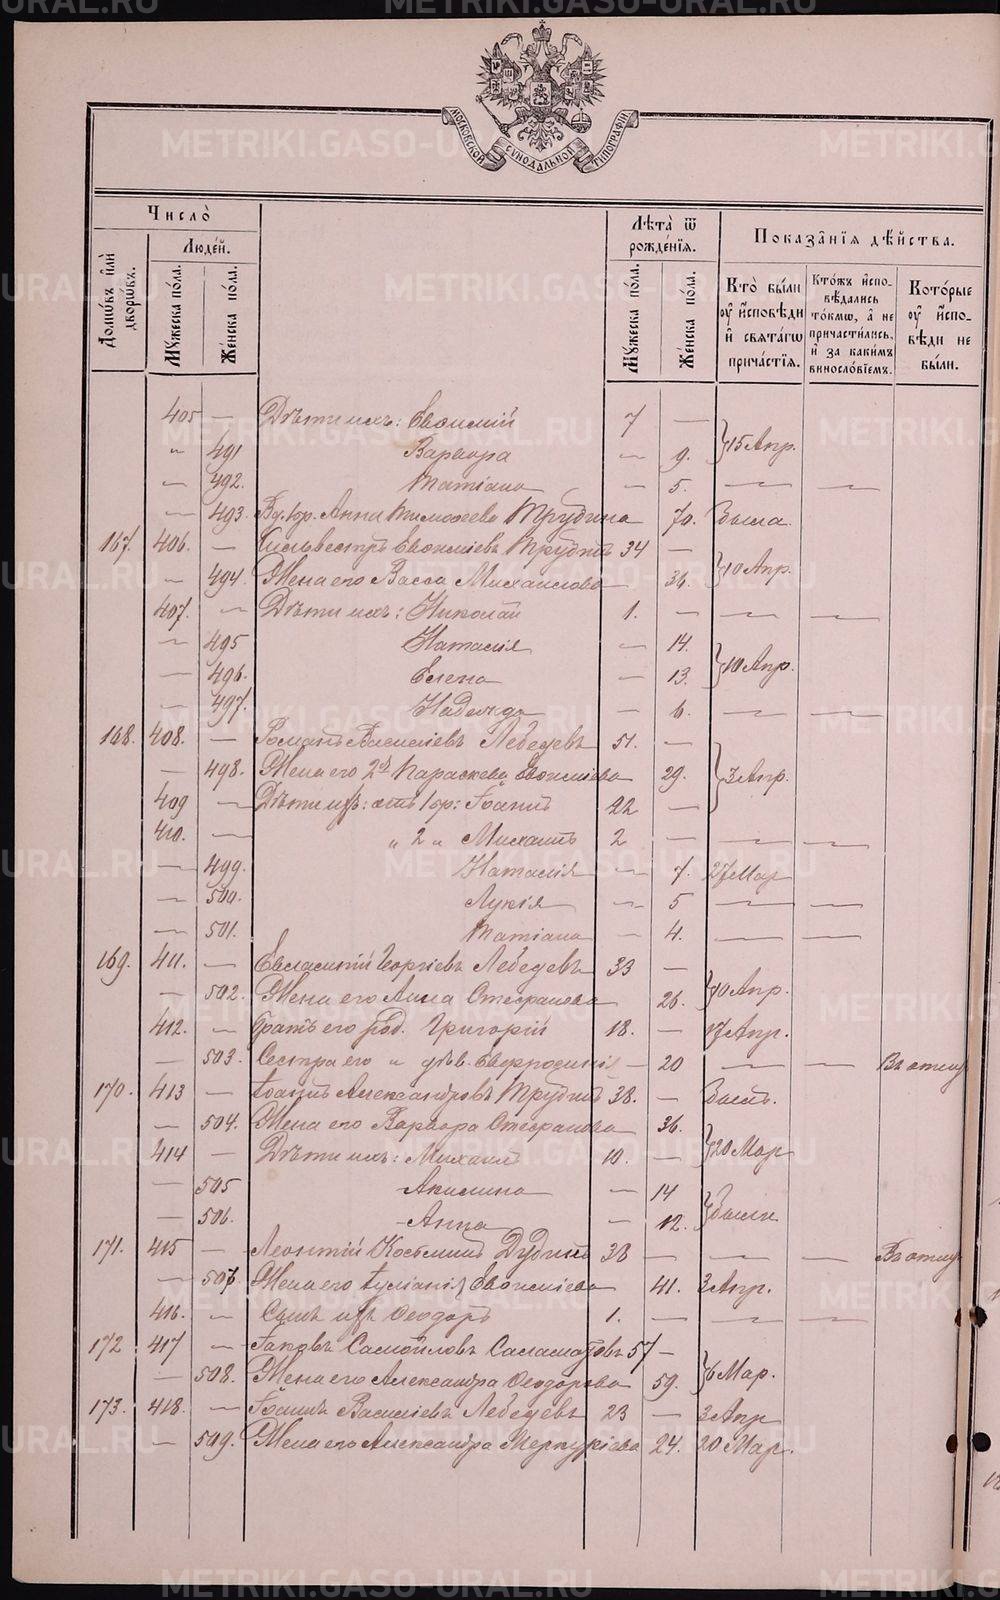 МОСКОВСКОЙ СѴНОДАЛЬНОЙ ТИПОГРАФІИ
Число̀
Домѡ́въ и҆лѝ дворѡ́въ.
Люде́й.
Мꙋ́жеска по́ла.
Же́нска по́ла.
Лѣ́та ѿ рожде́нїѧ.
Мꙋ́жеска по́ла.
Же́нска по́ла.
Показа̑нїѧ дѣ́йства.
Кто̀ бы́ли оу҆ и҆сповѣ́ди и҆ свѧта́гѡ прича́стїѧ.
Кто́жъ и҆сповѣ́дались то́кмѡ, а҆ не причасти́лись, и҆ за каки́мъ винослові́емъ.
Кото́рые оу҆ и҆сповѣ́ди не бы́ли.
405 — Дѣти ихъ: Евѳимій 7 —
„ 491 Варвара — 9. } 15 Апр.
— 492. Татіана — 5. — —
— 493. Вд. Анна Тимоѳеева Трубина 70. Была
167. 406. — Сильвестръ Евѳиміевъ Трубинъ 34 —
— 494. Жена его Васса Михаилова 36. } 10 Апр.
407. — Дѣти ихъ: Николай 1. — — —
— 495 Наталія — 14.
— 496. Елена — 13. } 10 Апр.
— 497. Надежда — 6. — —
168. 408. — Романъ Василіевъ Лебедевъ 51. —
— 498. Жена его 2я Параскева Евѳиміева 29. } 3 Апр.
409 — Дѣти ихъ: отъ 1 бр: Іоаннъ 22 —
410. — „ 2 „ Михаилъ 2 — — —
— 499. Наталія — 7. 27 Мар
— 500. Лукія — 5 — —
— 501. Татіана — 4. — —
169. 411. — Евлампій Георгіевъ Лебедевъ 33 —
— 502. Жена его Анна Стефанова 26. } 10 Апр.
412. — Братъ его род. Григорій 18. — 17 Апр.
— 503. Сестра его и дѣв. Евфросинія — 20 — — Въ отлуч
170. 413 — Іоаннъ Александровъ Трубинъ 38. — Былъ.
— 504. Жена его Варвара Стефанова 36.
414 — Дѣти ихъ: Михаилъ 10. — } 20 Мар
— 505 Акилина — 14
— 506. Анна — 12. } были
171. 415 — Леонтій Косьминъ Дубинъ 38 — — — Въ отлуч
— 507. Жена его Іуліанія Евѳиміева 41. 3 Апр.
416. — Сынъ ихъ Ѳеодоръ 1. — — —
172 417 — Іаковъ Самойловъ Саламатовъ 57 —
— 508. Жена его Александра Ѳеодорова 59. } 6 Мар.
173. 418. — Іоаннъ Василіевъ Лебедевъ 23 — 3 Апр
— 509. Жена его Александра Меркуріева 24. 20 Мар.